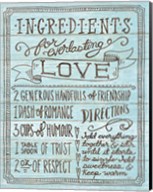 INGREDIENTS
for everlasting
LOVE
2 GENEROUS HANDFULLS of FRIENDSHIP
1 DASH of ROMANCE
3 CUPS of HUMOUR
1 TABLE OF TRUST
2 OZ OF RESPECT
DIRECTIONS
Add everything
together &
to
sweetness.
Keep warm